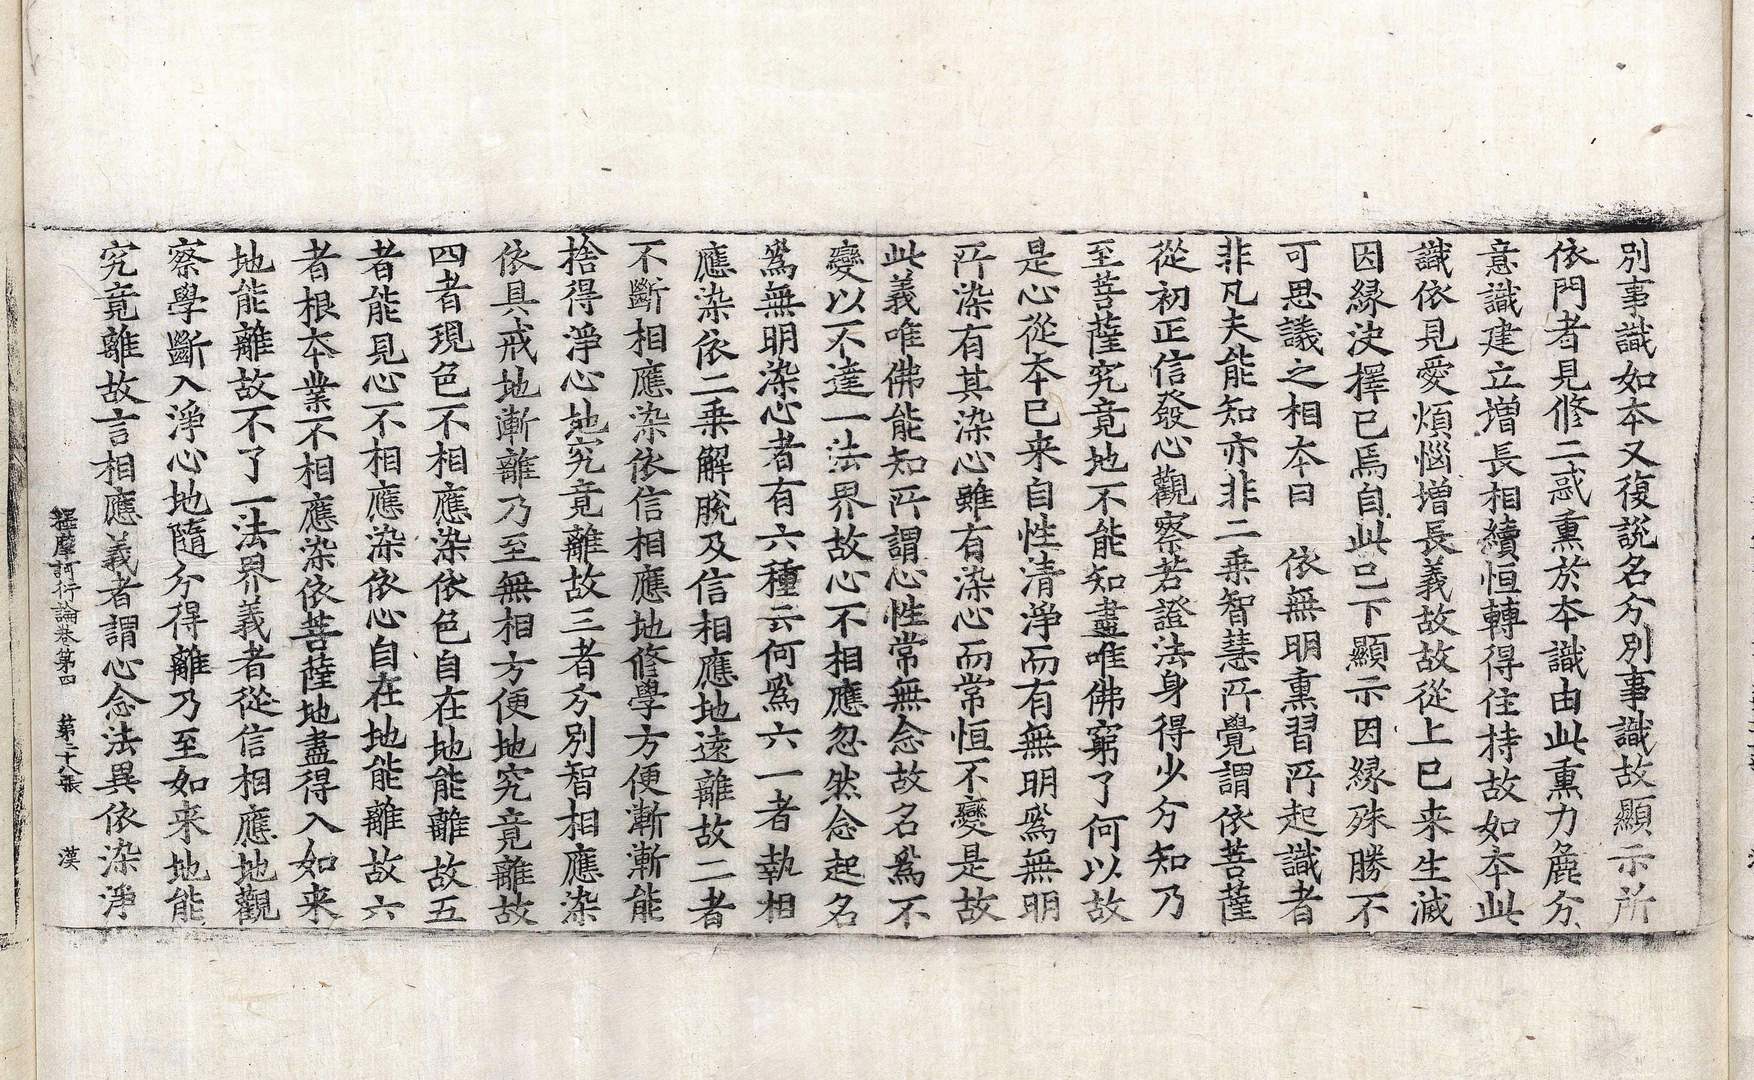 別事識如本又復說名分別事識故顯示所
依門者見修二惑熏於本識由此熏力麁分
意識建立增長相續恒轉得住持故如本此
識依見愛煩惱增長義故故從上已来生滅
因縁決擇已焉自此已下顯示因縁殊勝不
可思議之相本曰　依無明熏習所起識者
非凡夫能知亦非二乗智慧所覺謂依菩薩
從初正信發心觀察若證法身得少分知乃
至菩薩究竟地不能知盡唯佛窮了何以故
是心從本已来自性清淨而有無明爲無明
所染有其染心雖有染心而常恒不變是故
此義唯佛能知所謂心性常無念故名爲不
變以不達一法界故心不相應忽然念起名
爲無明染心者有六種云何爲六一者執相
應染依二乗解脫及信相應地遠離故二者
不斷相應染依信相應地修學方便漸漸能
捨得淨心地究竟離故三者分別智相應染
依具戒地漸離乃至無相方便地究竟離故
四者現色不相應染依色自在地能離故五
者能見心不相應染依心自在地能離故六
者根本業不相應染依菩薩地盡得入如来
地能離故不了一法界義者從信相應地觀
察學斷入淨心地隨分得離乃至如来地能
究竟離故言相應義者謂心念法異依染淨
釋摩訶衍論卷第四　第二十八張　漢